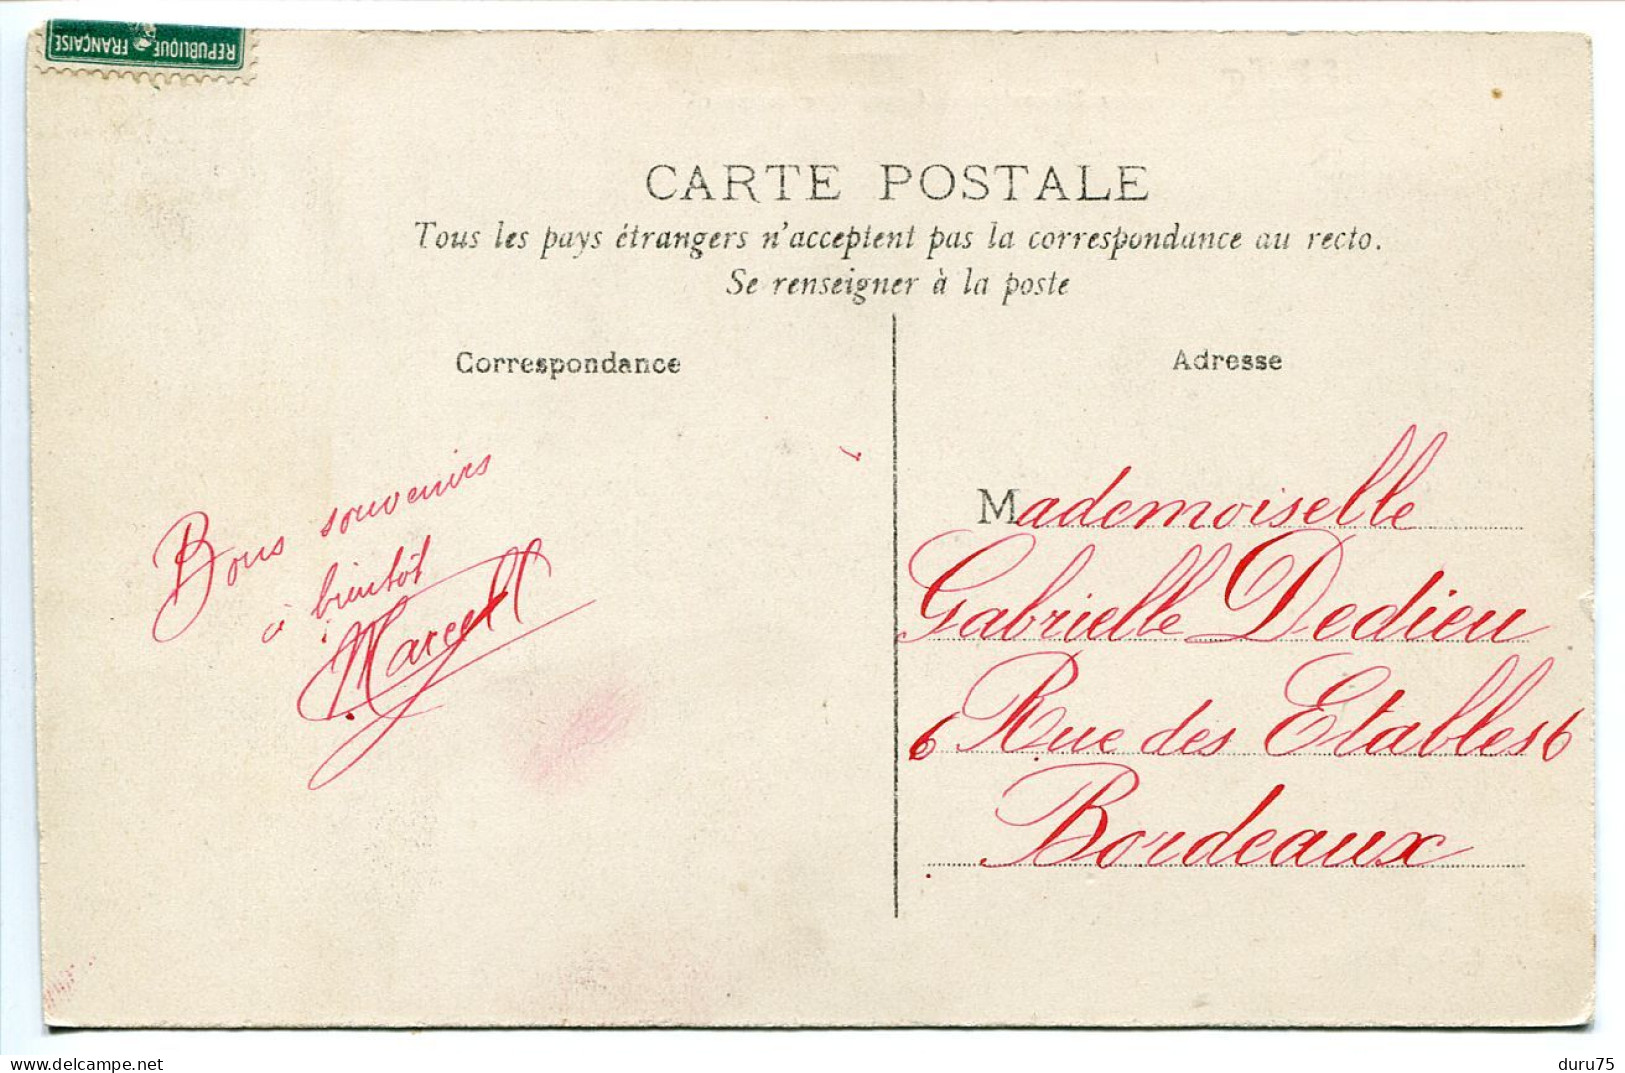 REPUBLIQUE FRANÇAISE
CARTE POSTALE
Tous les pays étrangers n'acceptent pas la correspondance au recto.
Se renseigner à la poste
Correspondance
Bons souvenirs
à bientôt
Marcell
Adresse
Mademoiselle
Gabrielle Dedieu
6 Rue des Etables 6
Bordeaux
delcampe.net
duru75